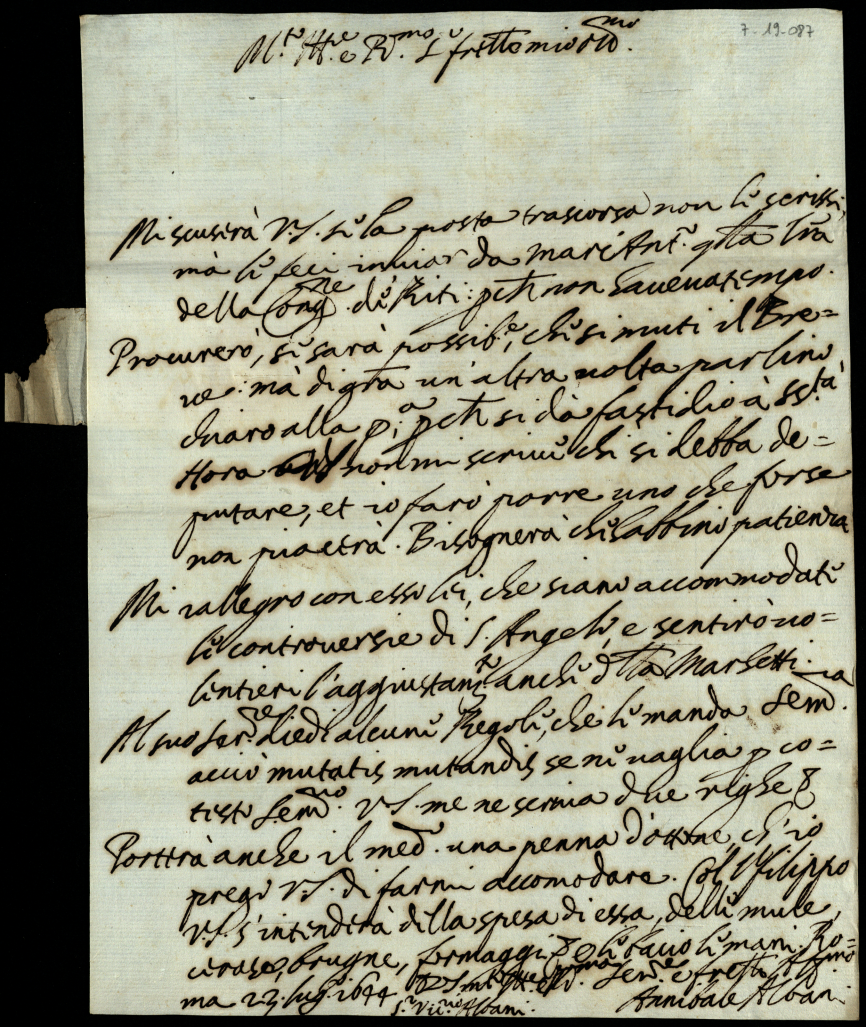 7-19-087
M.to Ill.re e R.mo S.r frello mio oss.mo
Mi scuserà V.S. se la posta trascorsa non le scrissi,
mà le feci inviar da Marc'Ant.o q.ta l'ra
della Cong.ne de' Riti: p̃ch non haveva tempo.
Procurerò, se sarà possib.e, che si muti il Bre=
ve: mà di gra un'altra volta parlino
chiaro alla p.a, p̃ch si dà fastidio à S.S.tà
Hora non mi scrive chi si debba de=
putare, et io farò porre uno che forse
non piacerà. Bisognerà ch'habbino patienza
Mi rallegro con esso lei, che siano accommodate
le controversie di S. Angelo, e sentirò vo=
lentieri l'aggiustam.to anche d'lla Marhetti.
Al suo ser.re diedi alcune Regole, che le manda
acciò mutatis mutandis se ne vaglia p co=
testo Sem.rio V.S. me ne scriva due righe &
Porterà anche il med.o una penna d'ottone, ch'io
prego V.S. di farmi accomodare. Col S.r Filippo
V.S. s'intenderà della spesa di essa, delle mule,
cerase, brugne, formaggi, & e le bacio le mani. Ro=
ma 23 lug.o 1644 D V.S. m.to Ill.re e R.ma Ser.re e frello aff.mo
S.r Vic.rio Albani. Annibale Albani